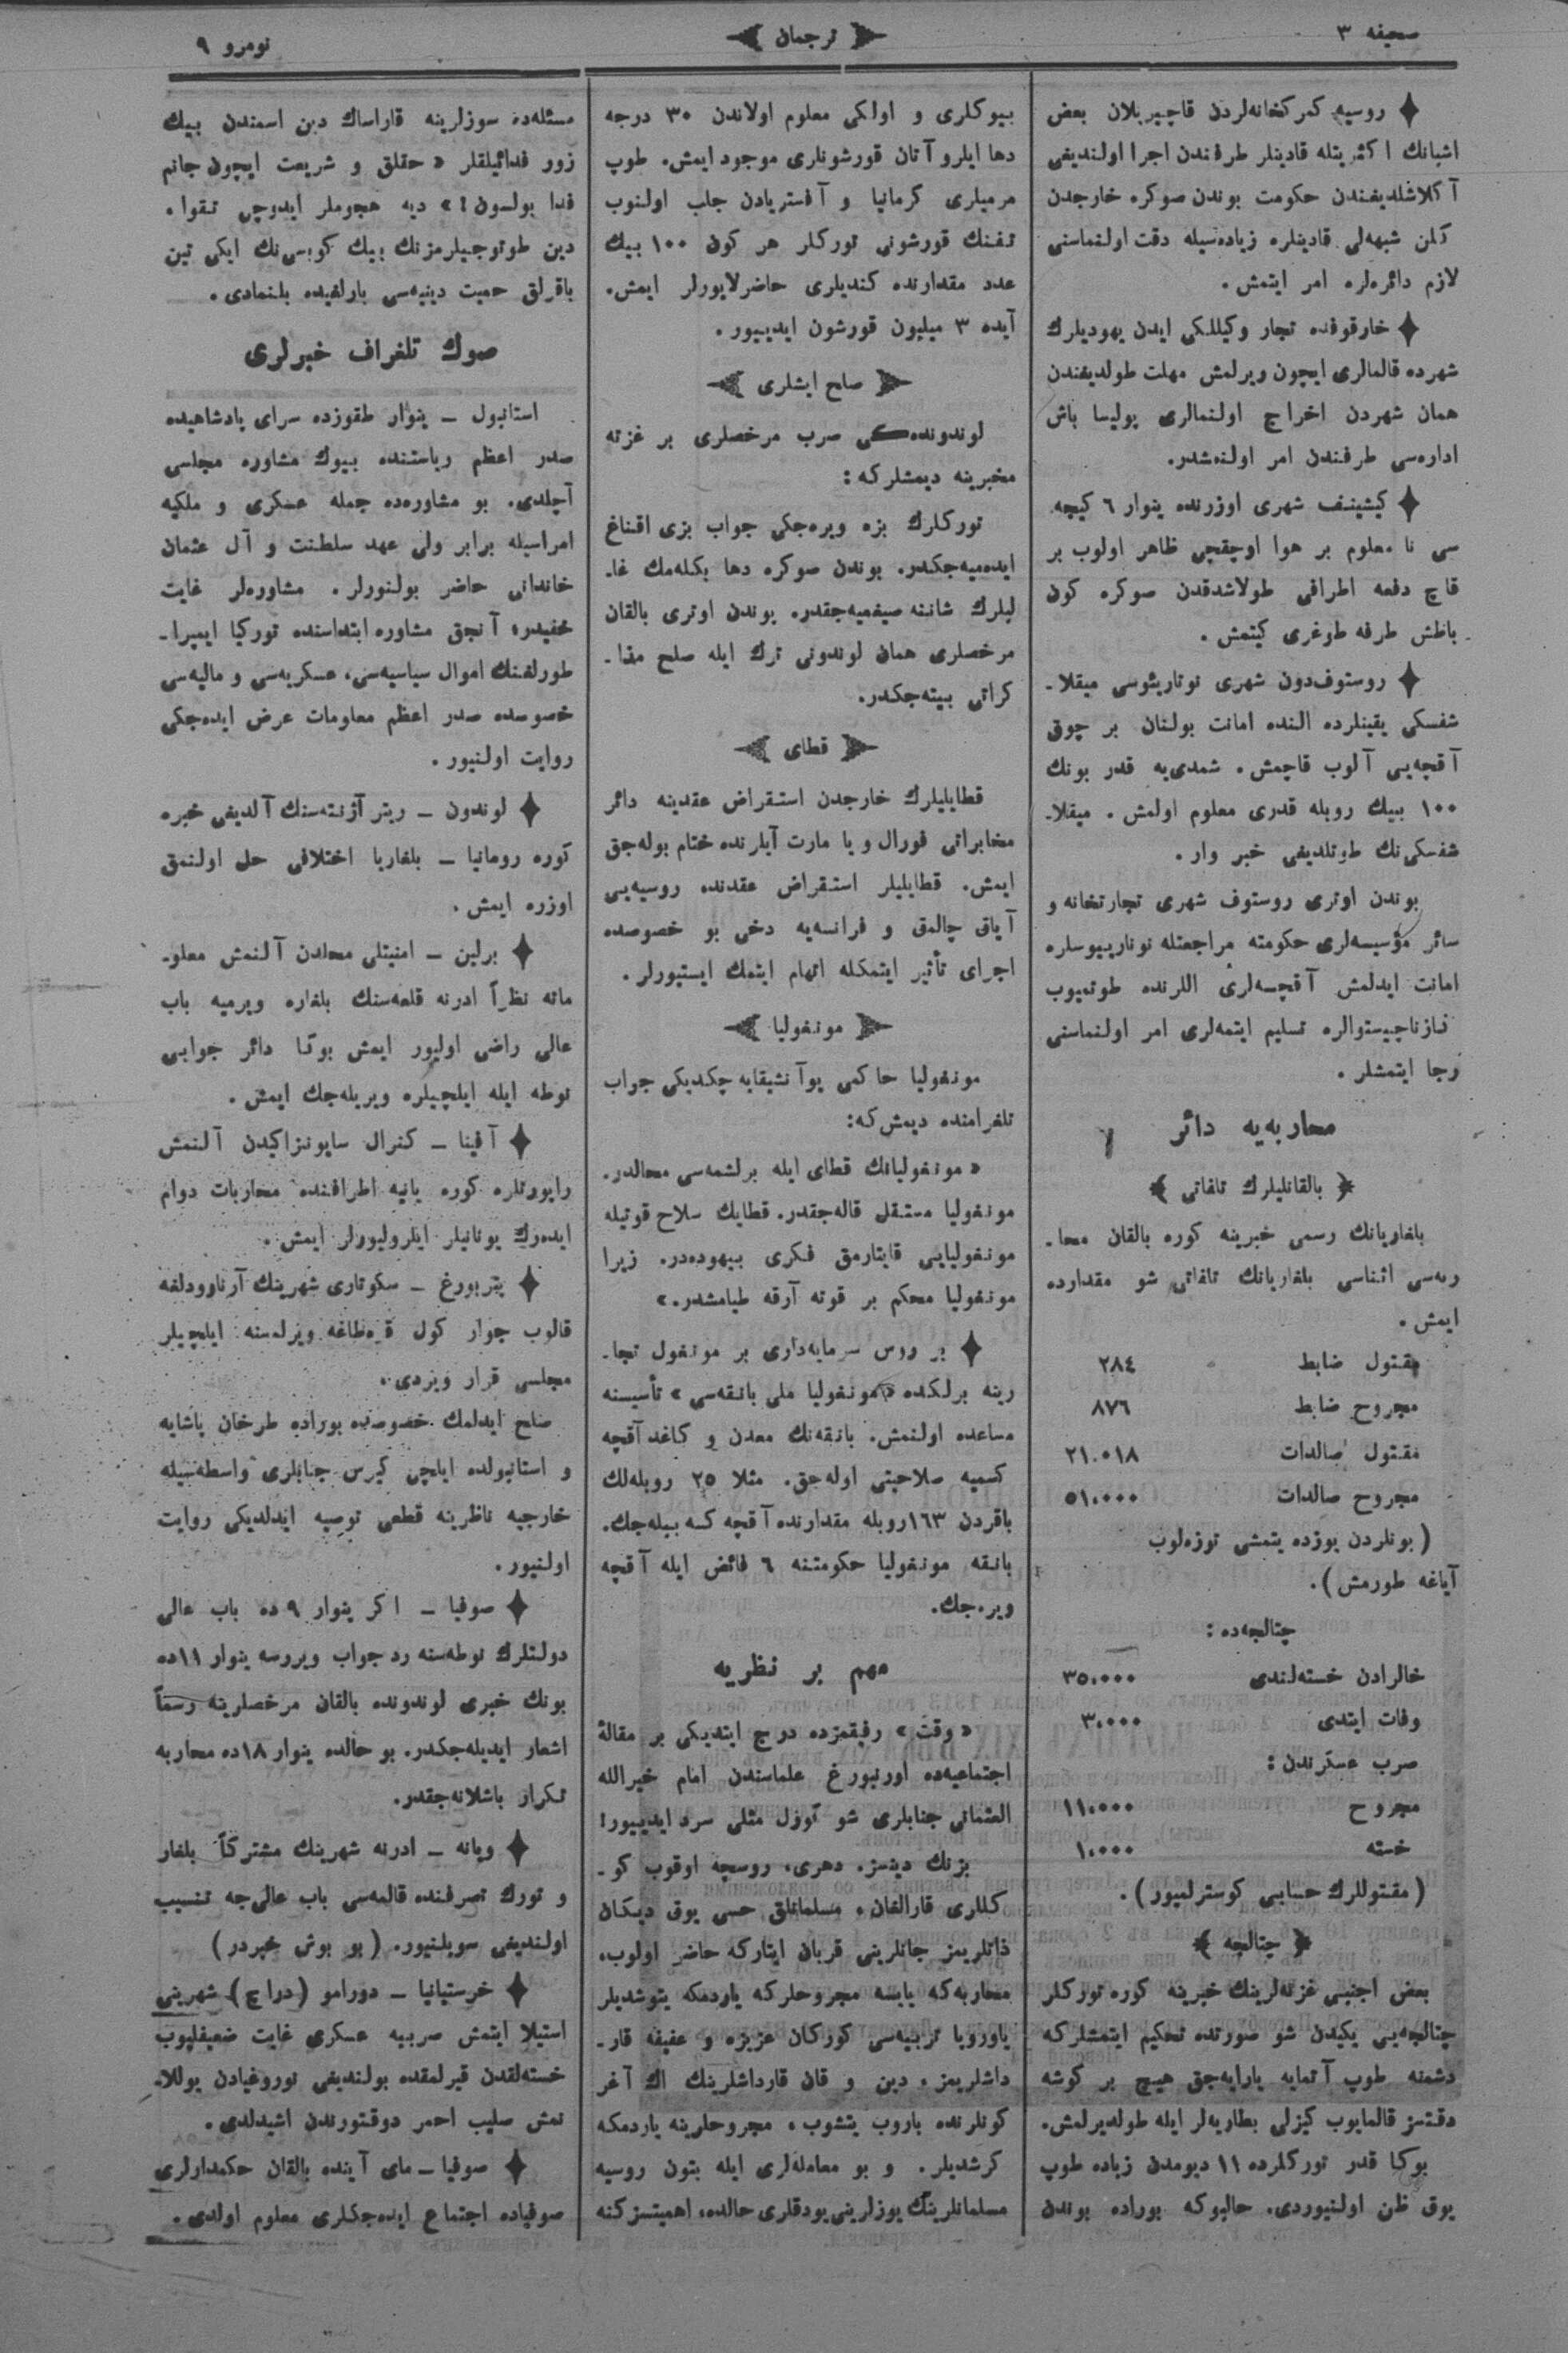 صحیفه ۳
ترجمان
نومرو ۹
روسیه كمركخانه‌لردن قاچیریلان بعض
اشیانك اكثریتله قادینلر طرفندن اجرا اولندیغی
آكلاشلدیغندن حكومت بوندن صوكره خارجدن
كلن شبهه‌لی قادینلره زیاده‌سیله دقت اولنماسنی
لازم دائره‌لره امر ایتمش.
خارقوفده تجار وكیللكی ایدن یهودیلرك
شهرده قالمالری ایچون ویرلمش مهلت طولدیغندن
همان شهردن اخراج اولنمالری پولیسا باش
اداره‌سی طرفندن امر اولنمشدر.
كیشینف شهری اوزرنده ینوار ٦ كیچه
سی نا معلوم بر هوا اوچقچی ظاهر اولوب بر
قاچ دفعه اطرافی طولاشدقدن صوكره كون
باطش طرفه طوغری كیتمش.
روستوف‌دون شهری نوتاریئوسی میقلا-
شفسكی یقینلرده النده امانت بولنان بر چوق
آقچه‌یی آلوب قاچمش. شمدی‌یه قدر بونك
۱۰۰ بیك روبله قدری معلوم اولمش. میقلا-
شفسكی‌نك طوتلدیغی خبر وار.
بوندن اوتری روستوف شهری تجارتخانه و
سائر مؤسیسه‌لری حكومته مراجعتله نوتاریيوسلره
امانت ایدلمش آقچه‌لری اللرنده طوتمیوب
قازناچیستوالره تسلیم ایتمه‌لری امر اولنماسنی
رجا ایتمشلر.
محاربه‌یه دائر
﴿ بالقانلیلرك تلفاتی ﴾
بلغاریانك رسمی خبرینه كوره بالقان محا-
ربه‌سی اثناسی بلغاریانك تلفاتی شو مقدارده
ایمش.
مقتول ضابط ۲۸٤
مجروح ضابط ۸۷٦
مقتول صالدات ۲۱.۰۱۸
مجروح صالدات ٥۱.۰۰۰
(بونلردن یوزده یتمشی توزه‌لوب
آیاغه طورمش).
چتالجه‌ده:
خالرادن خسته‌لندی ۳٥.۰۰۰
وفات ایتدی ۳.۰۰۰
صرب عسكرندن:
مجروح ۱۱.۰۰۰
خسته ۱.۰۰۰
(مقتوللرك حسابی كوسترلمیور).
﴿ چتالجه ﴾
بعض اجنبی غزته‌لرینك خبرینه كوره توركلر
چتالجه‌یی یكیدن شو صورتده تحكیم ایتمشلركه
دشمنه طوپ آتمایه یارایه‌جق هیچ بر كوشه
دقتسز قالمایوب كیزلی بطاریه‌لر ایله طولدیرلمش.
بوكا قدر توركلرده ۱۱ دیومدن زیاده طوپ
یوق ظن اولنیوردی. حالبوكه بوراده بوندن
بیوكلری و اولكی معلوم اولاندن ۳۰ درجه
دها ایلرو آتان قورشونلری موجود ایمش. طوپ
مرمیلری كرمانیا و آفستریادن جلب اولنوب
تفنك قورشونی توركلر هر كون ۱۰۰ بیك
عدد مقدارنده كندیلری حاضرلایورلر ایمش.
آیده ۳ میلیون قورشون ایدییور.
صلح ایشلری
لوندونده‌كی صرب مرخصلری بر غزته
مخبرینه دیمشلركه:
توركلرك بزه ویره‌جكی جواب بزی اقناغ
ایده‌میه‌جكدر. بوندن صوكره دها بكله‌مك غا-
لبلرك شاننه صیغمیه‌جقدر. بوندن اوتری بالقان
مرخصلری همان لوندونی ترك ایله صلح مذا-
كراتی بیته‌جكدر.
قطای
قطایلیلرك خارجدن استقراض عقدینه دائر
مخابراتی فورال و یا مارت آیلرنده ختام بوله‌جق
ایمش. قطایلیلر استقراض عقدنده روسیه‌یی
آیاق چالمق و فرانسه‌یه دخی بو خصوصده
اجرای تأثیر ایتمكله اتهام ایتمك ایستیورلر.
مونغولیا
مونغولیا حاكمی یوآنشیقایه چكدیكی جواب
تلغرامنده دیمش‌كه:
«مونغولیانك قطای ایله برلشمه‌سی محالدر.
مونغولیا مستقل قاله‌جقدر. قطایك سلاح قوتیله
مونغولیایی قایتارمق فكری بیهوده‌در. زیرا
مونغولیا محكم بر قوته آرقه طیامشدر.»
بر روس سرمایه‌داری بر مونغول تجا-
رینه برلكده «مونغولیا ملی بانقه‌سی» تأسیسنه
مساعده اولنمش. بانقه‌نك معدن و كاغد آقچه
كسمیه صلاحیتی اوله‌جق. مثلا ۲٥ روبله‌لك
باقردن ۱٦۳ روبله مقدارنده آقچه كسه بیله‌جك.
بانقه مونغولیا حكومتنه ٦ فائض ایله آقچه
ویره‌جك.
مهم بر نظریه
«وقت» رفیقمزده درج ایتدیكی بر مقالهٔ
اجتماعیه‌ده اورنبورغ علماسندن امام خیرالله
العثمانی جنابلری شو كوزل مثلی سرد ایدییور!
بزنك دینسز. دهری، روسچه اوقوب كو-
كللری قارالغان، مسلمانلق حسی یوق دیكان
ذاتلریمز جانلرینی قربان ایتاركه حاضر اولوب،
محاربه‌كه یابسه مجروحلركه یاردمكه یتوشدیلر
یاوروپا تربیه‌سی كوركان عزیزه و عفیفه قار-
داشلریمز، دین و قان قارداشلرینك اڭ آغر
كونلرنده باروب یتشوب، مجروحلرینه یاردمكه
كرشدیلر. و بو معامله‌لری ایله بتون روسیه
مسلمانلرینك یوزلرینی یودقلری حالده، اهمیتسزكنه
مسئله‌ده سوزلرینه قاراساڭ دین اسمندن بیك
زور فدائیلقلر «حقلق و شریعت ایچون جانم
فدا بولسون!» دیه هجوملر ایدوچی تقوا.
دین طوتوجیلرمزنك بیك كوبسی‌نك ایكی تین
باقرلق حمیت دینیه‌سی بارلغیده بلنمادی.
صوك تلغراف خبرلری
استانبول ــ ینوار طقوزده سرای پادشاهیده
صدر اعظم ریاستنده بیوك مشاوره مجلسی
آچلدی. بو مشاوره‌ده جمله عسكری و ملكیه
امراسیله برابر ولی عهد سلطنت و آل عثمان
خاندانی حاضر بولنورلر. مشاوره‌لر غایت
مخفیدر؛ آنجق مشاوره ابتداسنده توركیا ایمپرا-
طورلغنك اموال سیاسیه‌سی، عسكریه‌سی و مالیه‌سی
خصوصده صدر اعظم معلومات عرض ایده‌جكی
روایت اولنیور.
لوندون ــ ریتر آژنته‌سنك آلدیغی خبره
كوره رومانیا ــ بلغاریا اختلافی حل اولنمق
اوزره ایمش.
برلین ــ امنیتلی محلدن آلنمش معلو-
ماته نظراً ادرنه قلعه‌سنك بلغاره ویرمیه باب
عالی راضی اولیور ایمش بوكا دائر جوابی
نوطه ایله ایلچیلره ویریله‌جك ایمش.
آفینا ــ كنرال ساپونزاكیدن آلنمش
راپورتلره كوره یانیه اطرافنده محاربات دوام
ایده‌رك یونانیلر ایلرولیورلر ایمش.
پتربورغ ــ سكوتاری شهرینك آرناوودلغه
قالوب جوار كول قره‌طاغه ویرلمسنه ایلچیلر
مجلسی قرار ویردی.
صلح ایدلمك خصوصده بوراده طرخان پاشایه
و استانبولده ایلچی كیرس جنابلری واسطه‌سیله
خارجیه ناظرینه قطعی توصیه ایدلدیكی روایت
اولنیور.
صوفیا ــ اكر ینوار ۹ ده باب عالی
دولتلرك نوطه‌سنه رد جواب ویررسه ینوار ۱۱ده
بونك خبری لوندونده بالقان مرخصلرینه رسماً
اشعار ایدیله‌جكدر. بو حالده ینوار ۱۸ده محاربه
تكرار باشلانه‌جقدر.
ویانه ــ ادرنه شهرینك مشتركاً بلغار
و تورك تصرفنده قالمه‌سی باب عالیجه تنسیب
اولندیغی سویلنیور. (بو بوش خبردر)
خرستیانیا ــ دورامو (دراچ) شهرینی
استیلا ایتمش صربیه عسكری غایت ضعیفلیوب
خسته‌لقدن قیرلمقده بولندیغی نوروغیادن یوللا-
نمش صلیب احمر دوقتورندن اشیدلدی.
صوفیا ــ مای آینده بالقان حكمدارلری
صوفیاده اجتماع ایده‌جكلری معلوم اولدی.